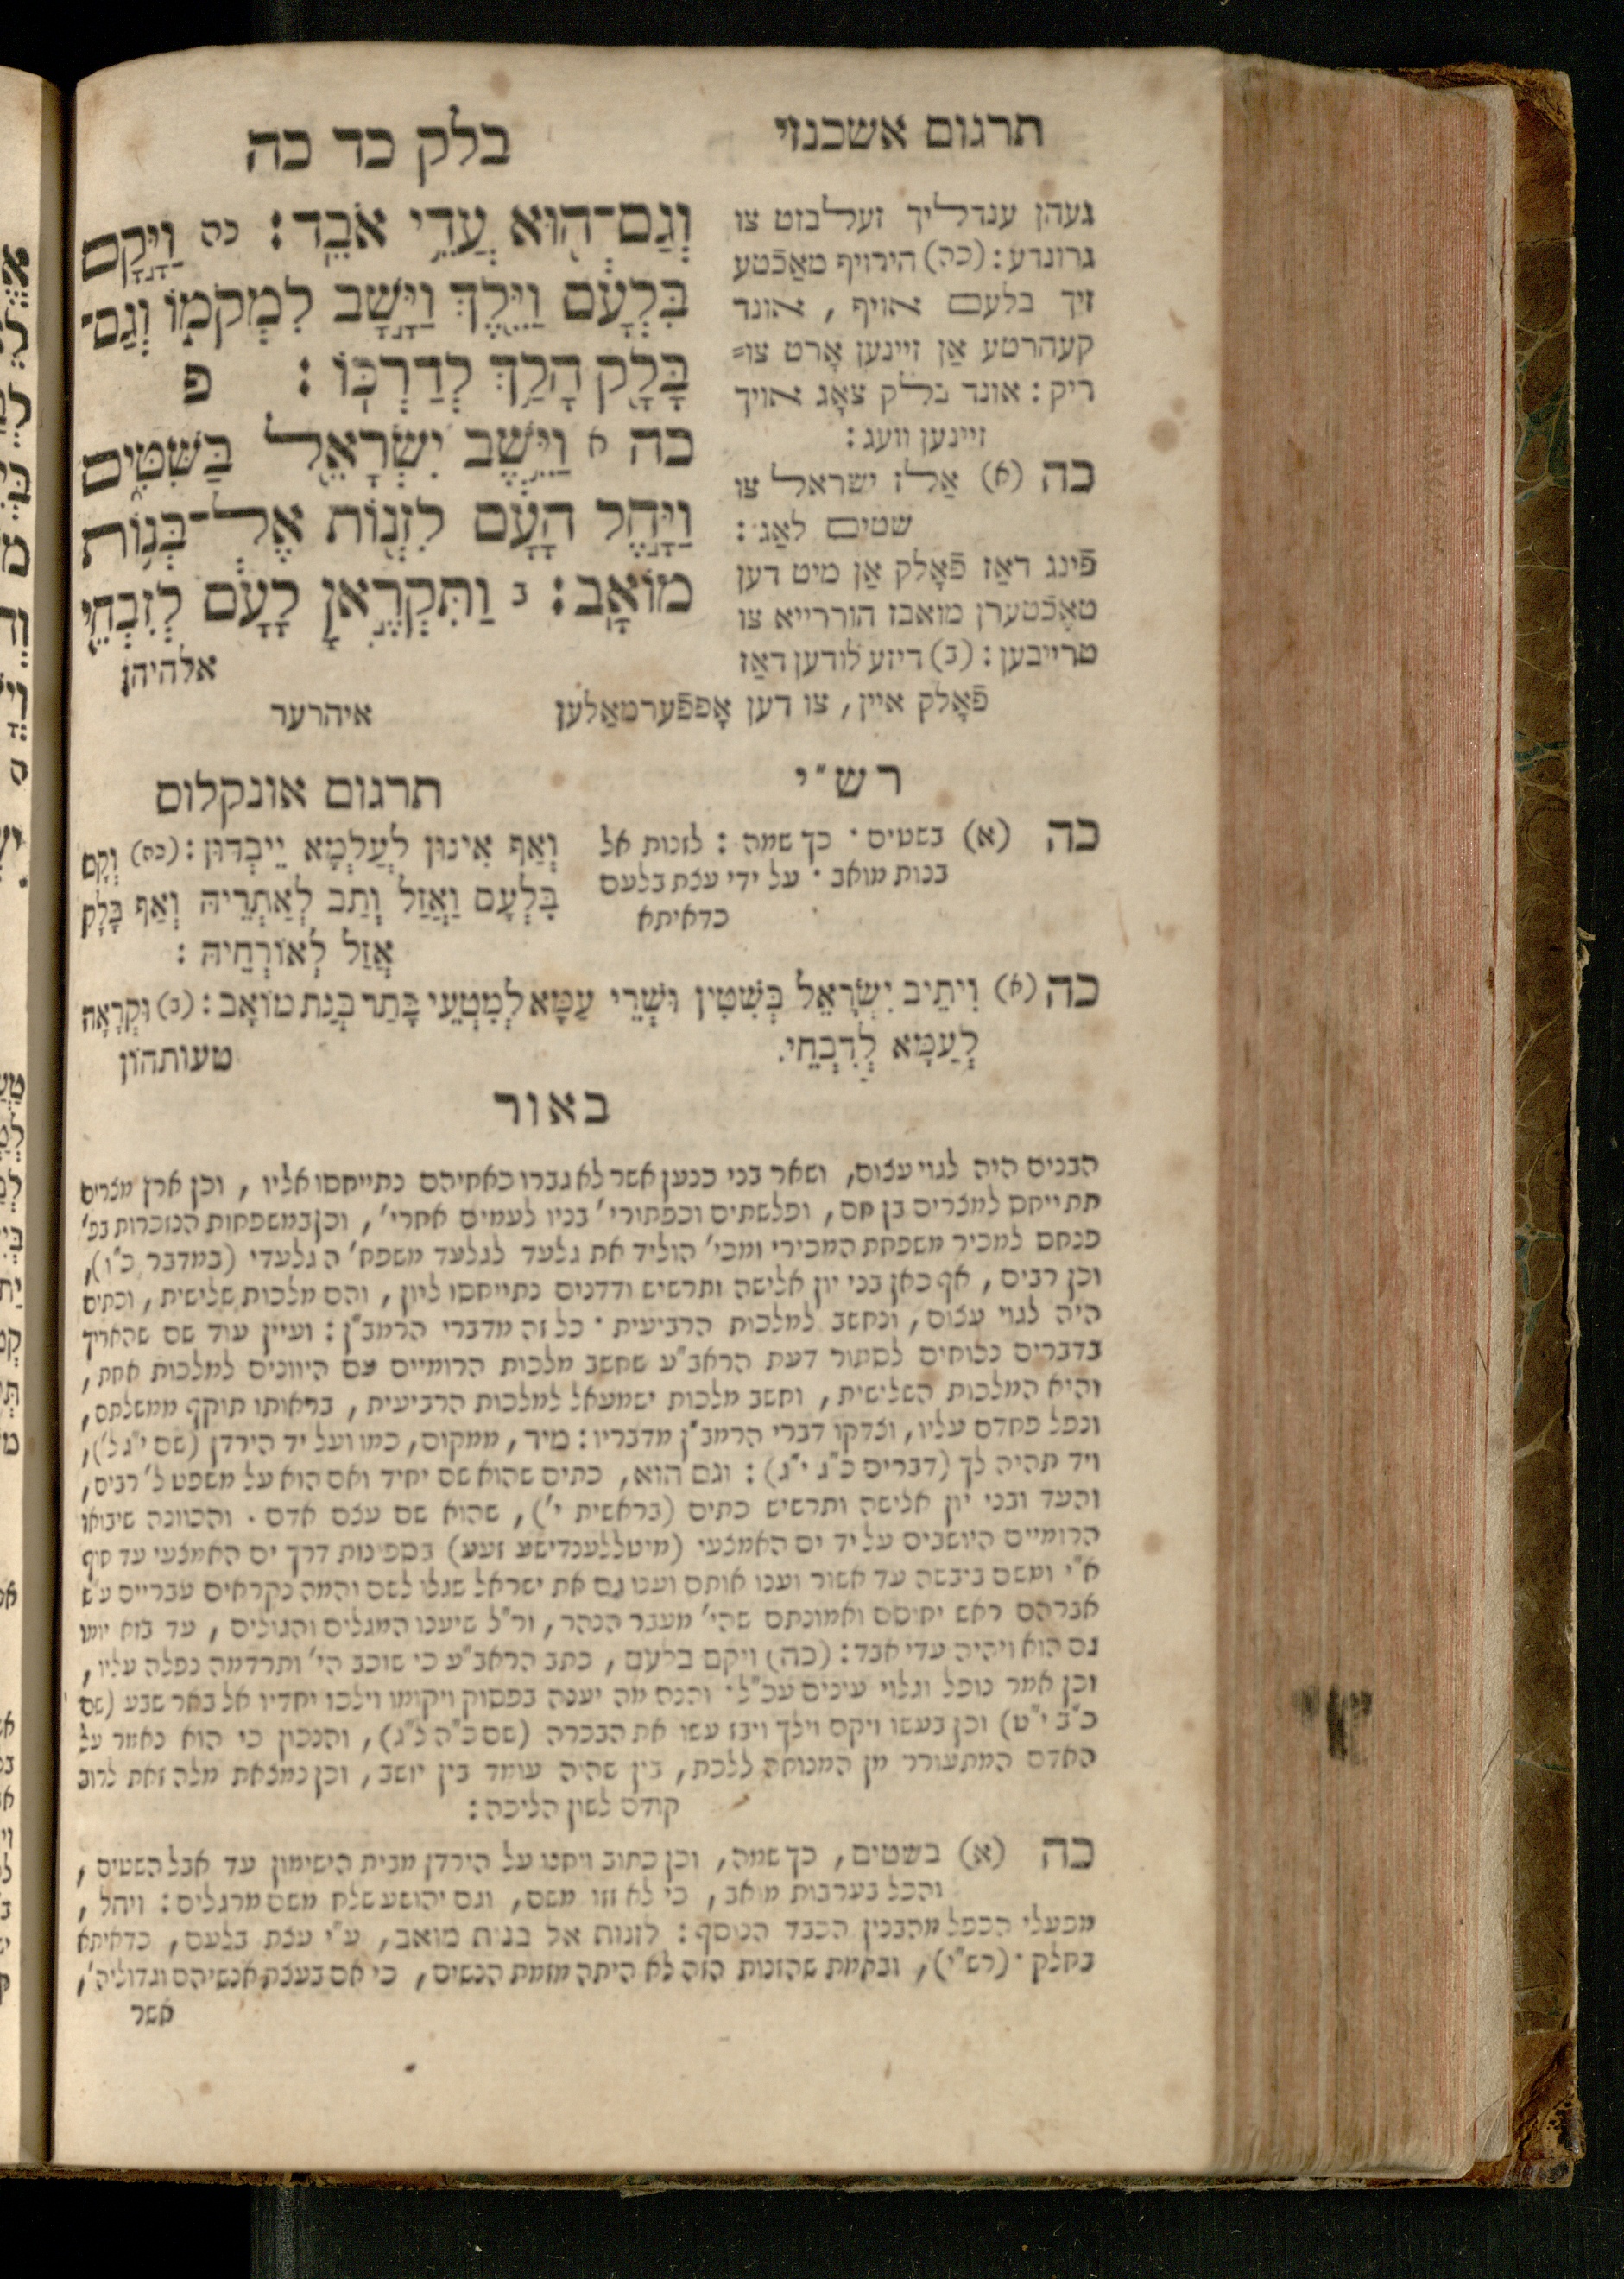 תרגום אשכנזי
בלק כד כה
וְגַם־הוּא עֲדֵי אֹבֵד: כה וַיָּקָם
בִּלְעָם וַיֵּלֶךְ וַיָּשָׁב לִמְקֹמוֹ וְגַם־
בָּלָק הָלַךְ לְדַרְכּוֹ: פ
כה א וַיֵּשֶׁב יִשְׂרָאֵל בַּשִּׁטִּים
וַיָּחֶל הָעָם לִזְנוֹת אֶל־בְּנוֹת
מוֹאָב: ב וַתִּקְרֶאןָ לָעָם לְזִבְחֵי
אלהיהן
געהן ענדליך זעלבזט צו
גרונדע: (כה) הירויף מאַכֿטע
זיך בלעם אויף, אונד
קעהרטע אַן זיינען אָרט צו=
ריק: אונד בלק צאָג אויך
זיינען וועג:
כה (א) אַלז ישראל צו
שטים לאַג:
פֿינג דאַז פֿאָלק אַן מיט דען
טאָכֿטערן מואבז הוררייא צו
טרייבען: (ב) דיזע לודען דאַז
פֿאָלק איין, צו דען אָפפֿערמאַלען
איהרער
רש"י
כה (א) בשטים · כך שמה: לזנות אל
בנות מואב · על ידי עצת בלעם
כדאיתא
תרגום אונקלוס
וְאַף אִינוּן לְעָלְמָא יֵיבְדוּן: (כה) וְקָם
בִּלְעָם וַאֲזַל וְתַב לְאַתְרֵיהּ וְאַף בָּלָק
אֲזַל לְאוֹרְחֵיהּ:
כה (א) וִיתֵיב יִשְׂרָאֵל בְּשִׁטִּין וְשָׁרֵי עַמָּא לְמִטְעֵי בָּתַר בְּנַת מוֹאָב: (ב) וּקְרָאָה
לְעַמָּא לְדִבְחֵי
טעותהון
באור
הבנים היה לגוי עצום, ושאר בני כנען אשר לא גברו כאחיהם נתייחסו אליו, וכן ארץ מצרים
תתייחס למצרים בן חם, ופלשתים וכפתורי' בניו לעמים אחרי', וכן במשפחות הנזכרות בפ'
פנחס למכיר משפחת המכירי ומכי' הוליד את גלעד לגלעד משפח' הגלעדי (במדבר כ"ו),
וכן רבים, אף כאן בני יון אלישה ותרשיש ודדנים נתייחסו ליון, והם מלכות שלישית, וכתים
היה לגוי עצום, ונחשב למלכות הרביעית · כל זה מדברי הרמב"ן: ועיין עוד שם שהאריך
בדברים נכוחים לסתור דעת הראב"ע שחשב מלכות הרומיים עם היוונים למלכות אחת,
והיא המלכות השלישית, וחשב מלכות ישמעאל למלכות הרביעית, בראותו תוקף ממשלתם,
ונפל פחדם עליו, וצדקו דברי הרמב"ן מדבריו: מיד, ממקום, כמו ועל יד הירדן (שם י"ג ל'),
ויד תהיה לך (דברים כ"ג י"ג): וגם הוא, כתים שהוא שם יחיד ואם הוא על משפט ל' רבים,
והעד ובני יון אלישה ותרשיש כתים (בראשית י'), שהוא שם עצם אדם. והכוונה שיבואו
הרומיים היושבים על יד ים האמצעי (מיטללענדישע זעע) בספינות דרך ים האמצעי עד סוף
א"י ומשם ביבשה עד אשור וענו אותם וענו גם את ישראל שגלו לשם והמה נקראים עבריים ע"ש
אברהם ראש יחוסם ואמונתם שהי' מעבר הנהר, ור"ל שיענו המגלים והגולים, עד בוא יומו
גם הוא ויהיה עדי אבד: (כה) ויקם בלעם, כתב הראב"ע כי שוכב הי' ותרדמה נפלה עליו,
וכן אמר נופל וגלוי עינים עכ"ל · והנה מה יענה בפסוק ויקומו וילכו יחדיו אל באר שבע (שם
כ"ב י"ט) וכן בעשו ויקם וילך ויבז עשו את הבכרה (שם כ"ה ל"ג), והנכון כי הוא נאמר על
האדם המתעורר מן המנוחה ללכת, בין שהיה עומד בין יושב, וכן נמצאת מלה זאת לרוב
קודם לשון הליכה:
כה (א) בשטים, כך שמה, וכן כתוב ויחנו על הירדן מבית הישימון עד אבל השטים,
והכל בערבות מואב, כי לא זזו משם, וגם יהושע שלח משם מרגלים: ויחל,
מפעלי הכפל מהבנין הכבד הנוסף: לזנות אל בנות מואב, ע"י עצת בלעם, כדאיתא
בחלק · (רש"י), ובאמת שהזנות הזה לא היתה מזמת הנשים, כי אם בעצת אנשיהם וגדוליה',
אשר